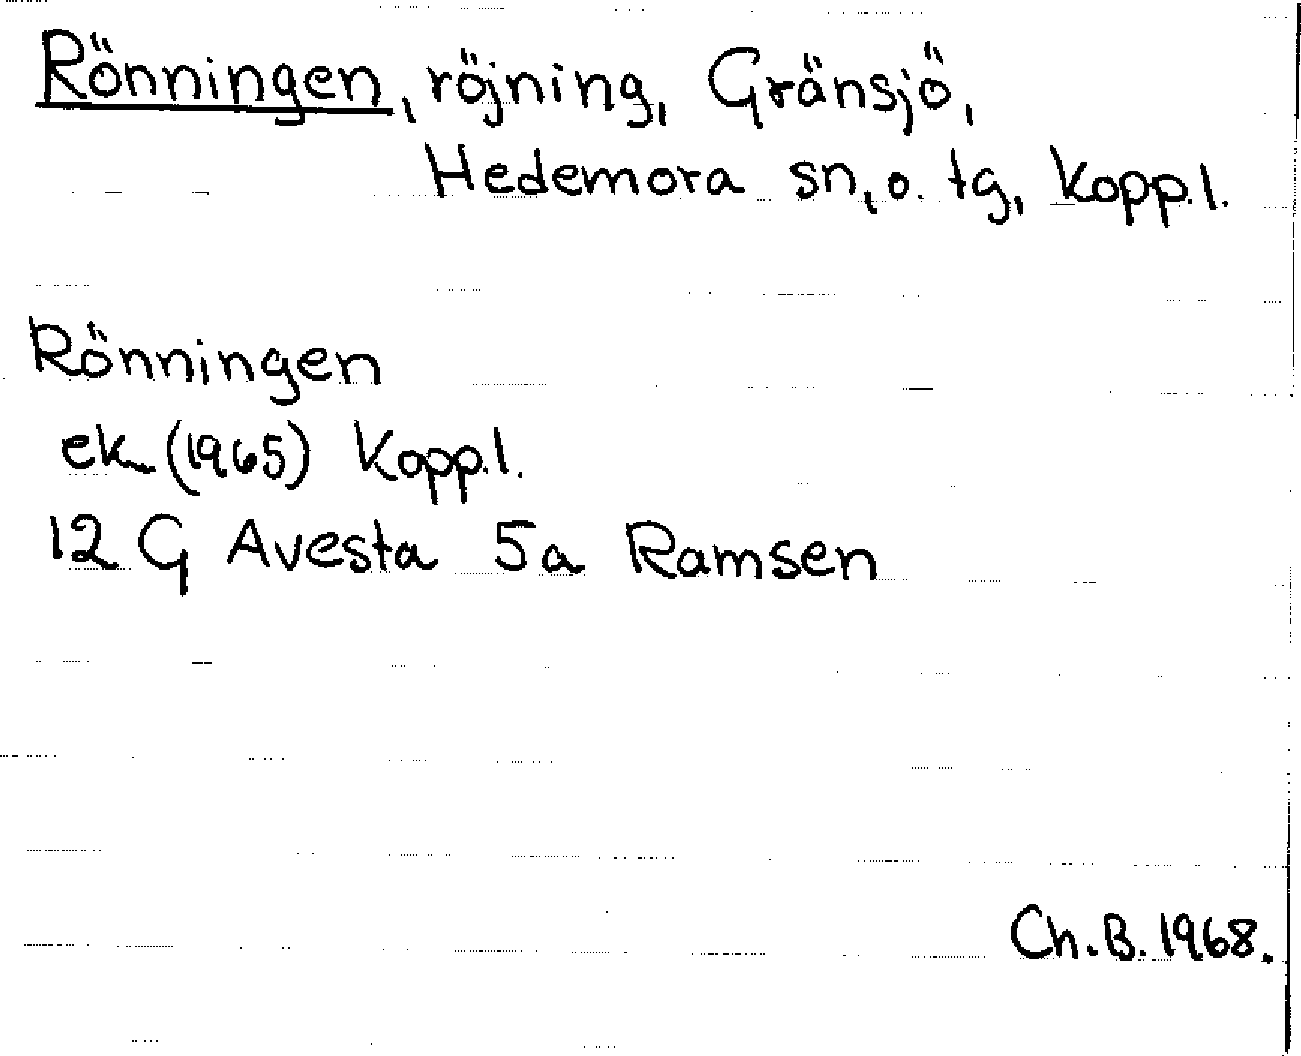 Rönningen, röjning, Gränsjö,
Hedemora sn, o. tg, Kopp.l.
Rönningen
ek (1965) Kopp.l.
12 G Avesta 5a Ramsen
Ch.B. 1968.